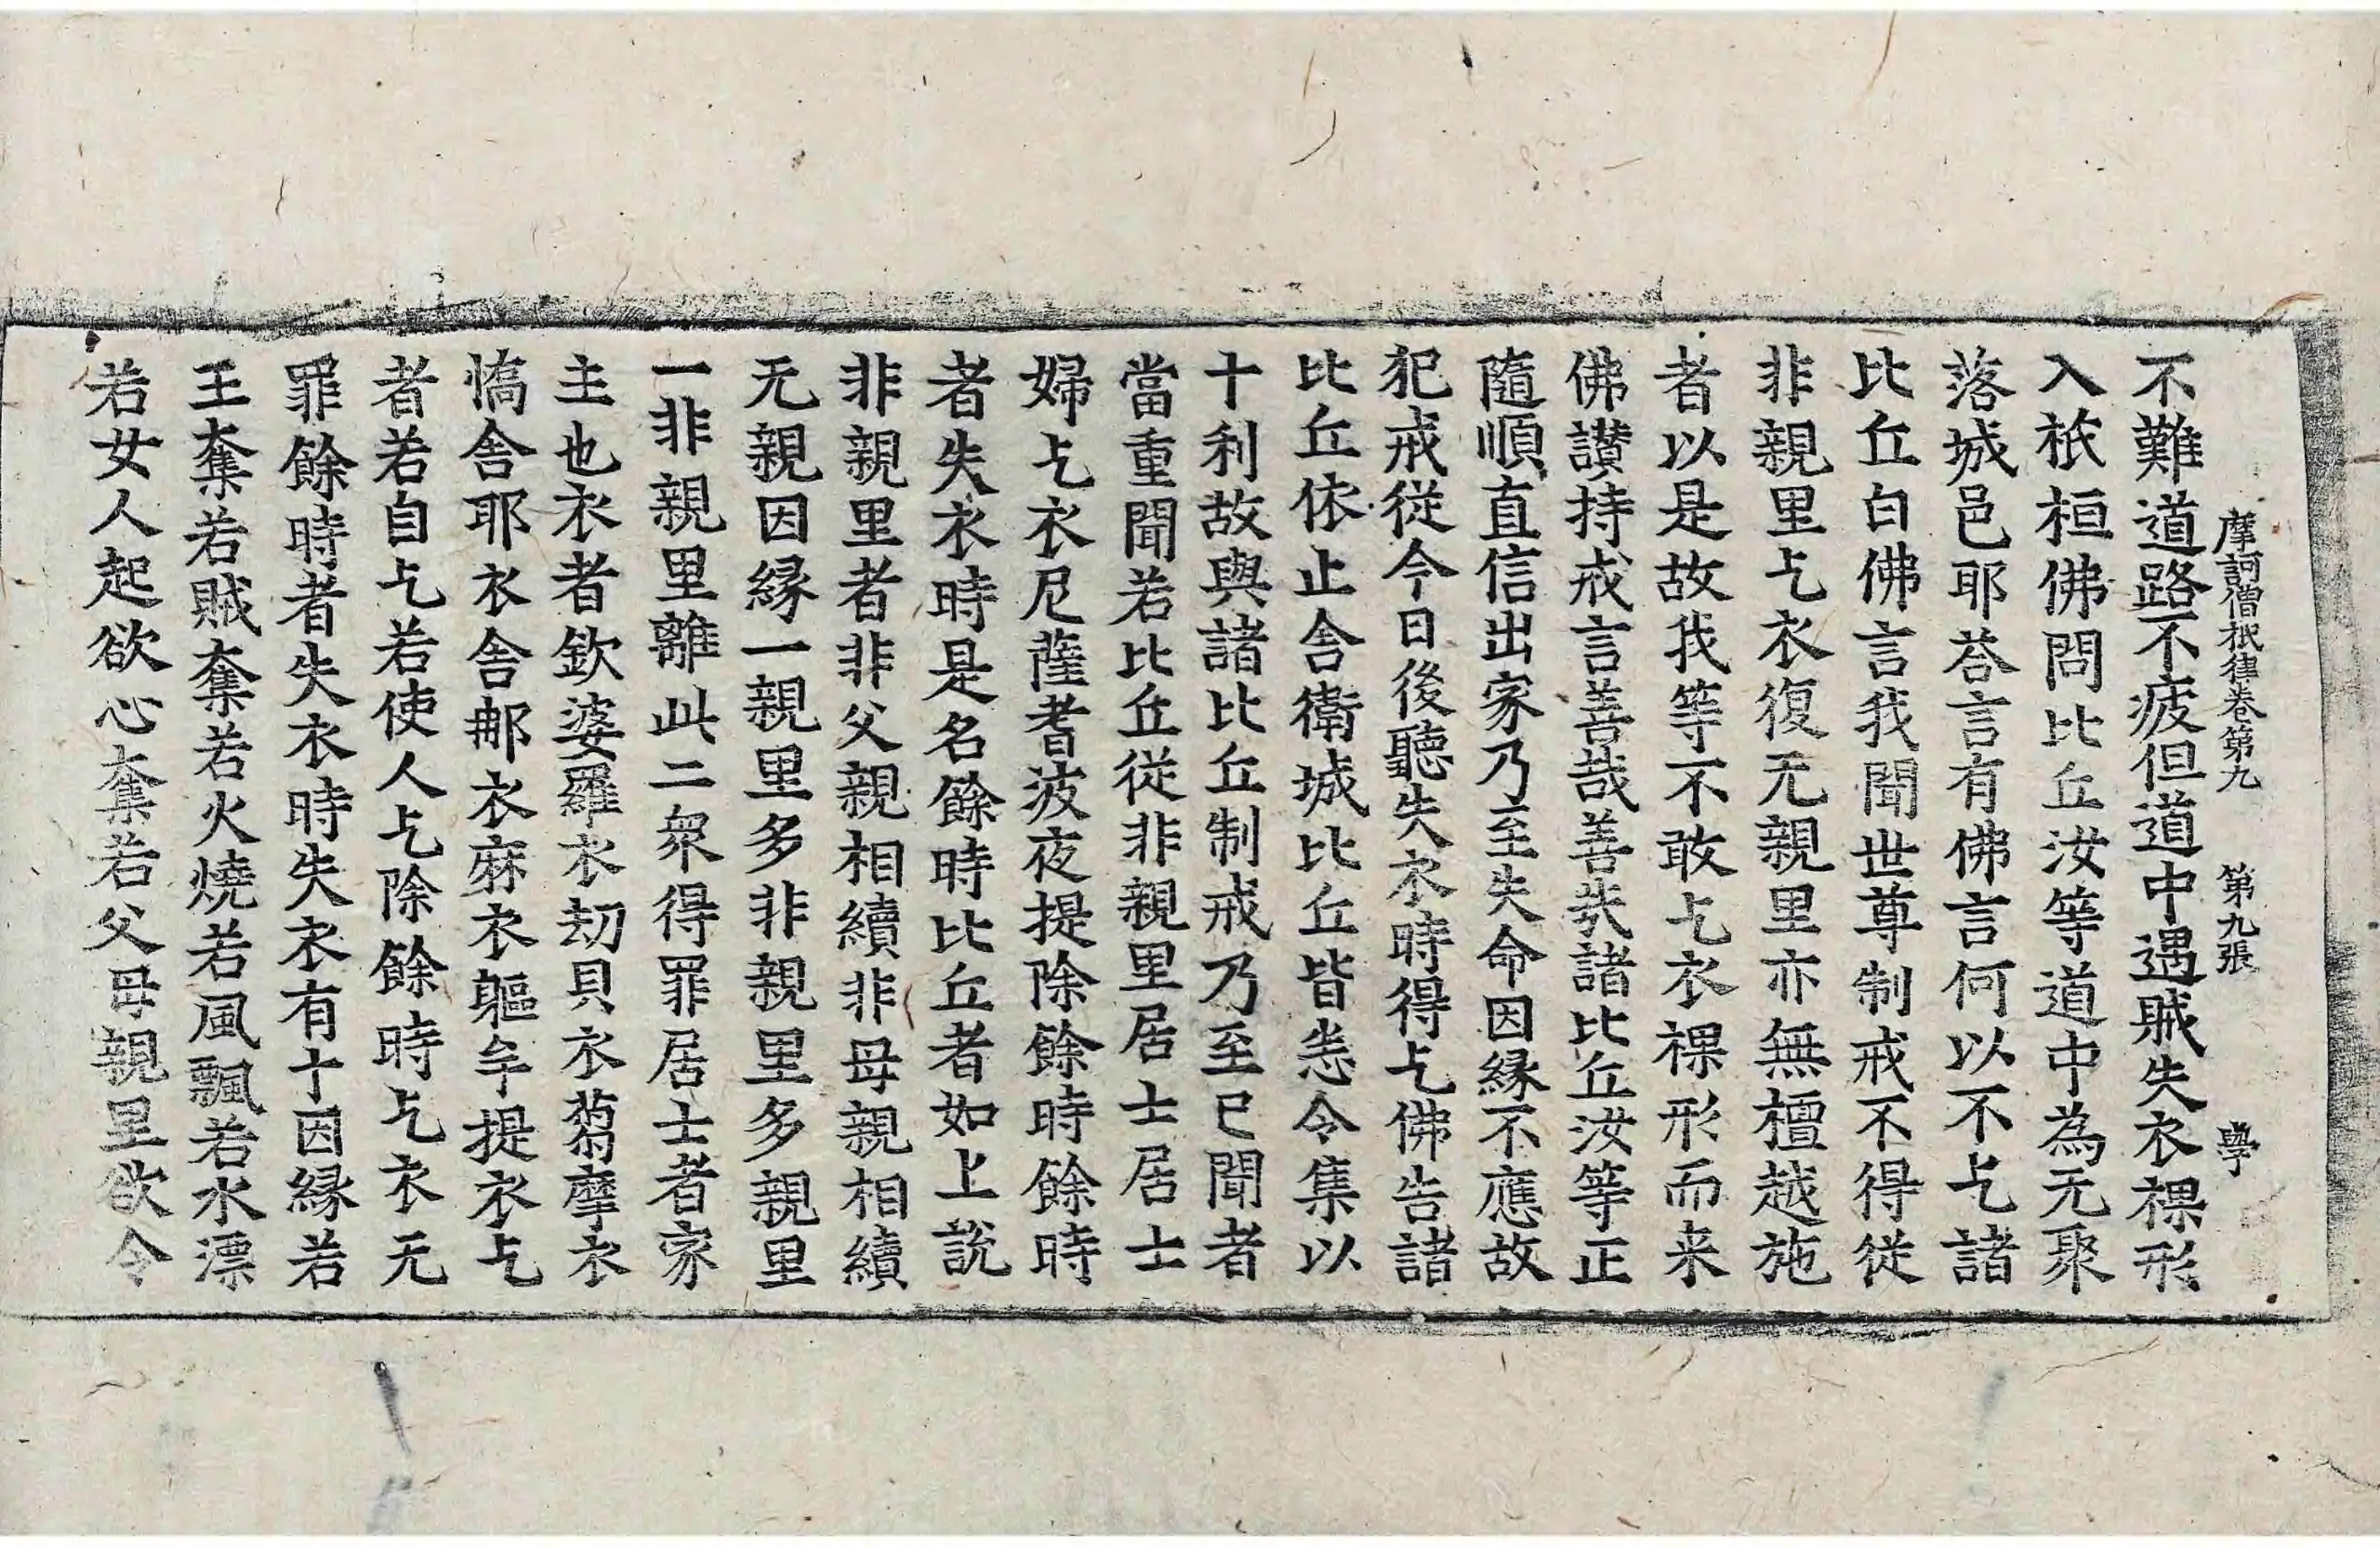 摩訶僧祇律卷第九 第九張 學
不難道路不疲但道中遇賊失衣裸形
入祇桓佛問比丘汝等道中為无聚
落城邑耶荅言有佛言何以不乞諸
比丘白佛言我聞世尊制戒不得從
非親里乞衣復无親里亦無檀越施
者以是故我等不敢乞衣裸形而来
佛讃持戒言善哉善哉諸比丘汝等正
隨順直信出家乃至失命因緣不應故
犯戒從今日後聽失衣時得乞佛告諸
比丘依止舍衛城比丘皆悉令集以
十利故與諸比丘制戒乃至已聞者
當重聞若比丘從非親里居士居士
婦乞衣尼薩耆波夜提除餘時餘時
者失衣時是名餘時比丘者如上說
非親里者非父親相續非母親相續
无親因緣一親里多非親里多親里
一非親里離此二衆得罪居士者家
主也衣者欽婆羅衣劫貝衣蒭摩衣
憍舍耶衣舍那衣麻衣軀牟提衣乞
者若自乞若使人乞除餘時乞衣无
罪餘時者失衣時失衣有十因緣若
王奪若賊奪若火燒若風飄若水漂
若女人起欲心奪若父母親里欲令